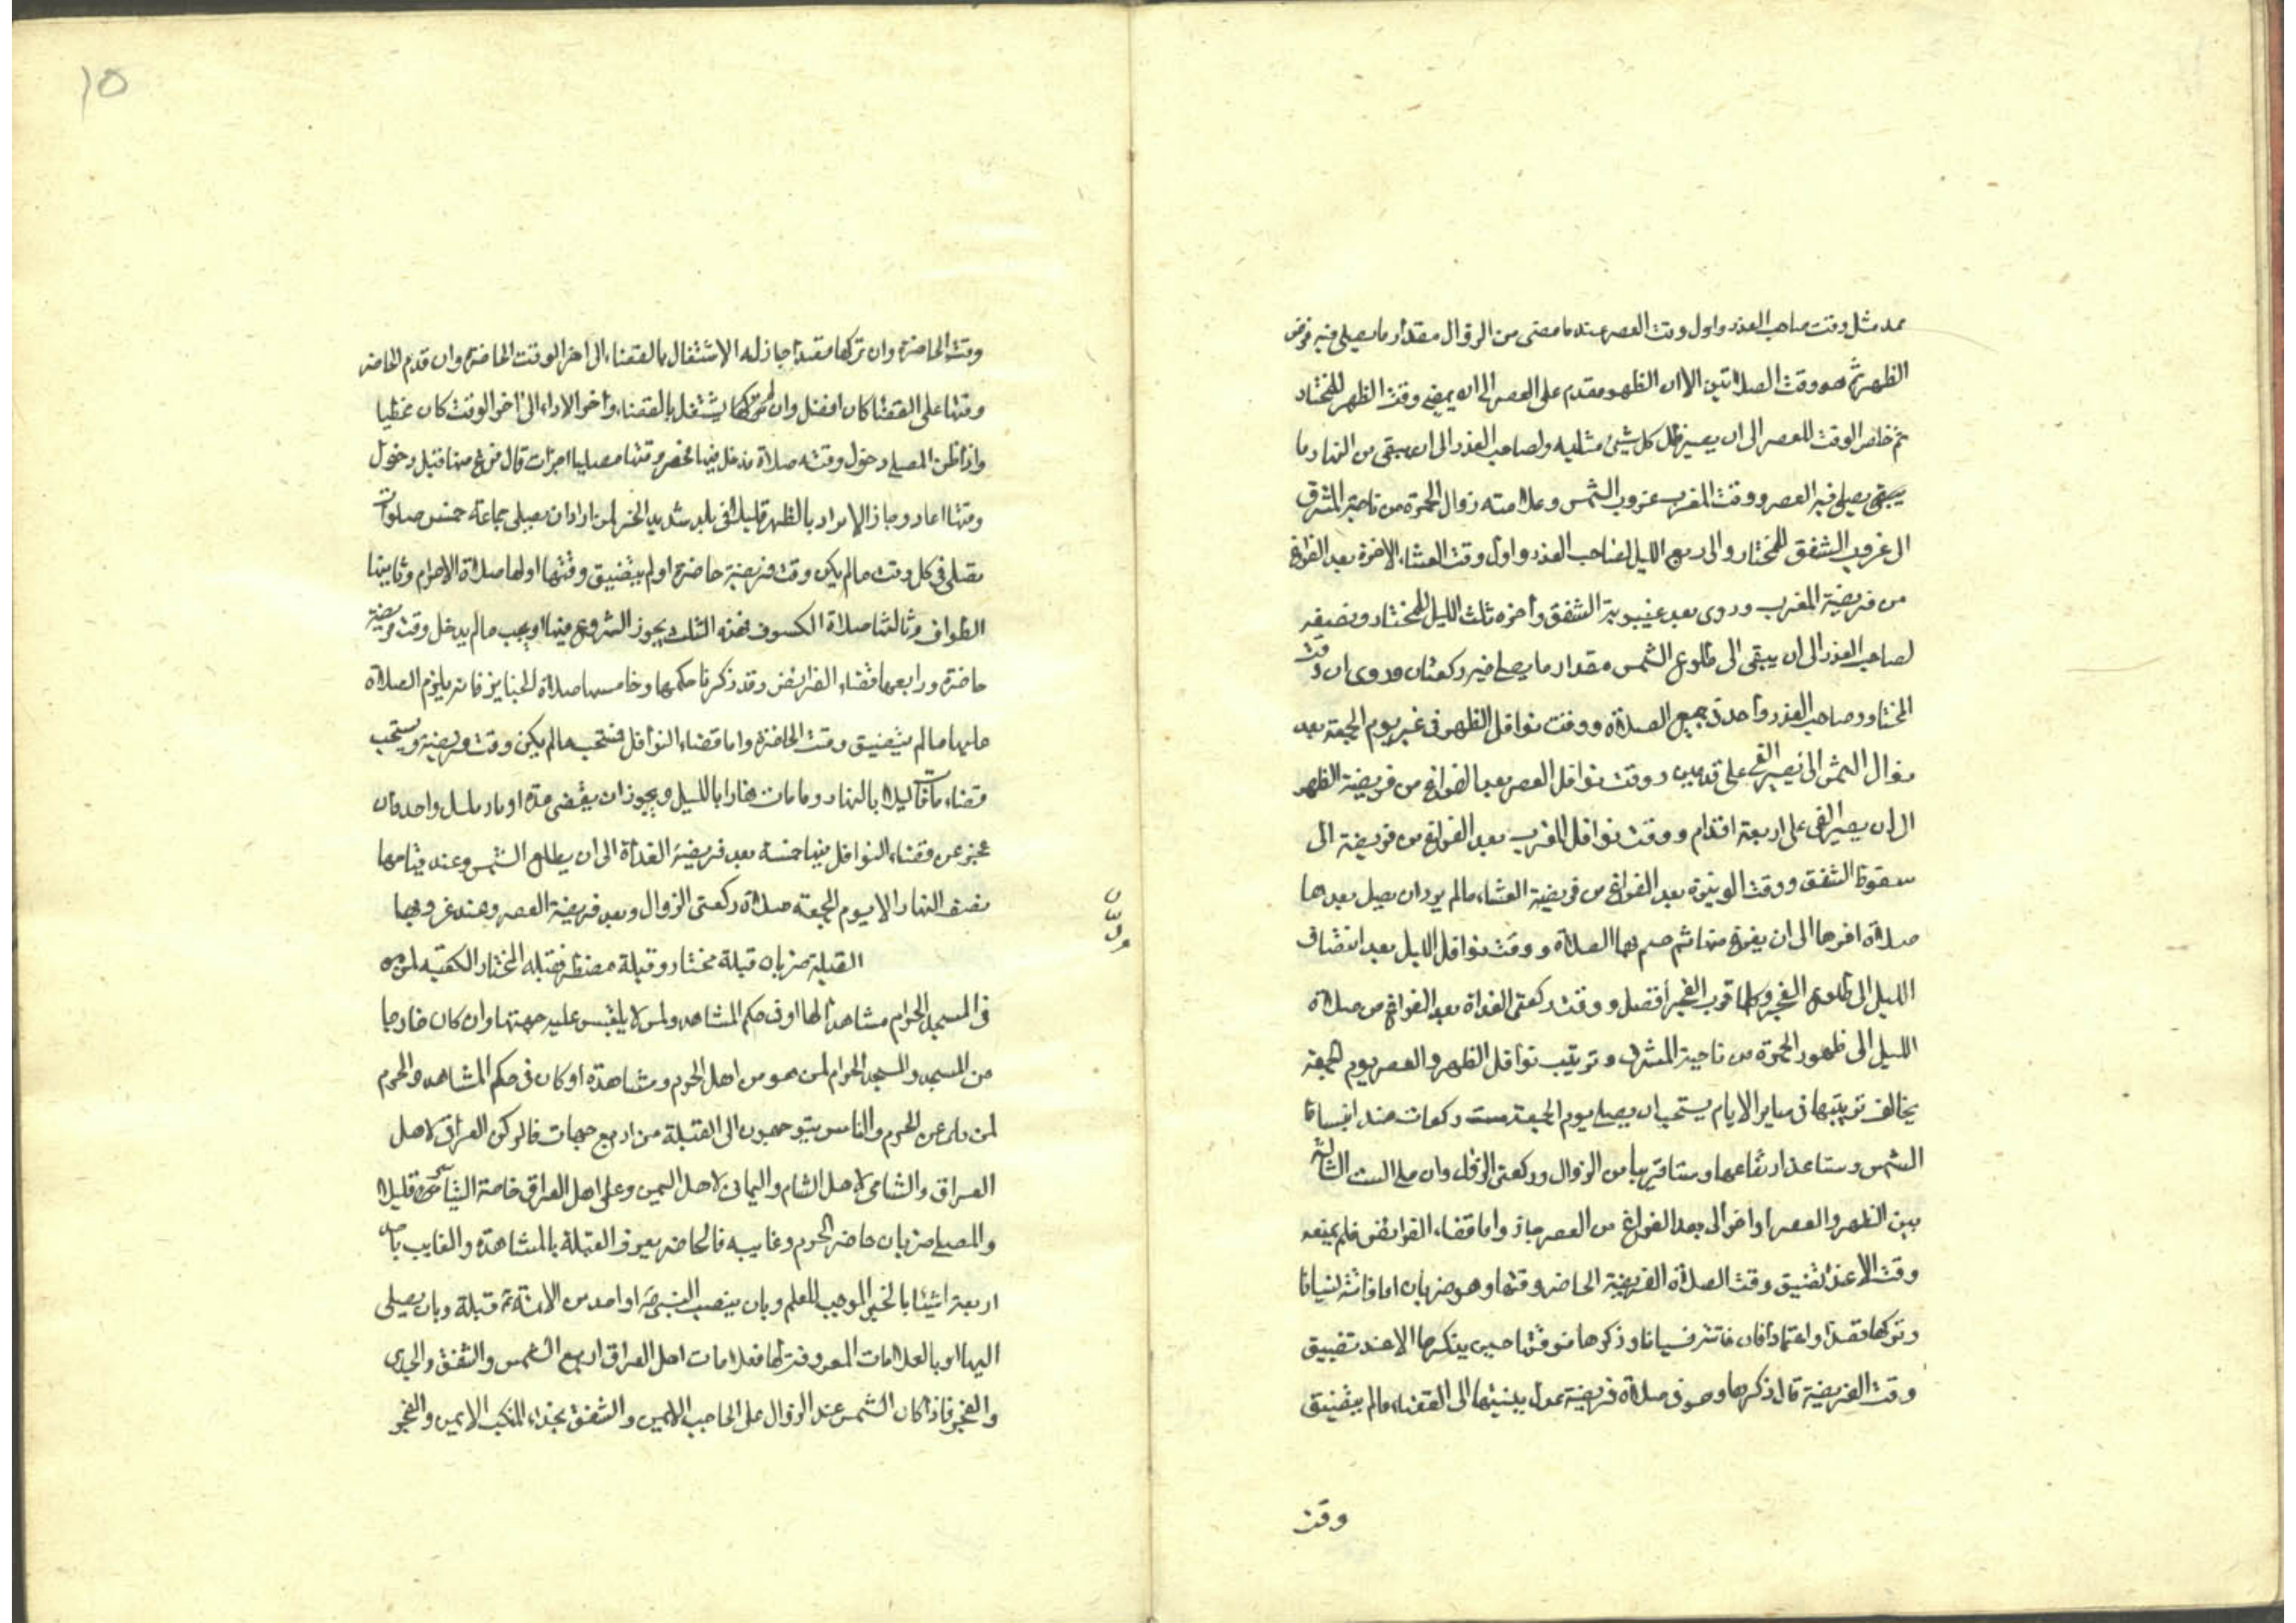 مد مثل وقت صاحب العذر واول وقت العصر عند ما مضى من الزوال مقدار ما يصلى فيه فرض
الظهر ثم هو وقت الصلاتين الا ان الظهر مقدم على العصر الى ان يمضى وقت الظهر للمختار
ثم خلص الوقت للعصر الى ان يصير ظل كل شيئ مثليه ولصاحب العذر الى ان يبقى من النهار ما
يبقى يصلى فيه العصر ووقت المغرب غروب الشمس وعلامته زوال الحمرة من ناحية المشرق
الى غروب الشفق للمختار والى ربع الليل لصاحب العذر واول وقت العشاء الاخرة بعد الفراغ
من فريضة المغرب وروى بعد غيبوبة الشفق واخره ثلث الليل للمختار ونصفه
لصاحب العذر الى ان يبقى الى طلوع الشمس مقدار ما يصلى فيه ركعتان وروى ان وقت
المختار وصاحب العذر واحد فى جميع الصلاة ووقت نوافل الظهر فى غير يوم الجمعة بعد
زوال الشمس الى ان يصير الفئ على قدمين ووقت نوافل العصر بعد الفراغ من فريضة الظهر
الى ان يصير الفئ على اربعة اقدام ووقت نوافل المغرب بعد الفراغ من فريضة الى
سقوط الشفق ووقت الوتيرة بعد الفراغ من فريضة العشاء ما لم يرد ان يصلى بعدها
صلاة اخرها الى ان يفرغ منها ثم ختم بها الصلاة ووقت نوافل الليل بعد انتصاف
الليل الى طلوع الفجر وكلما قرب الفجر افضل ووقت ركعتى الغداة بعد الفراغ من صلاة
الليل الى ظهور الحمرة من ناحية المشرق وترتيب نوافل الظهر والعصر يوم الجمعة
يخالف ترتيبها فى ساير الايام يستحب ان يصلى يوم الجمعة ست ركعات عند انبساط
الشمس وستا عند ارتفاعها وستا قريبا من الزوال وركعتى الزوال وان صلى الست الثالثة
بين الظهر والعصر او اخر الى بعد الفراغ من العصر جاز واما قضاء الفرائض فلم يمنعه
وقت الا عند تضيق وقت الصلاة الفريضة الحاضر وقتها وهو ضربان اما فاتته نسيانا
وتركها قصدا واعتمادا فان فاتته نسيانا وذكرها فوقتها حين يذكرها الا عند تضييق
وقت الفريضة فان ذكرها وهو فى صلاة فريضة عدل بنيتها الى القضاء ما لم يتضيق
وقت
١٥
وقت الحاضرة وان تركها قصدا جاز له الاشتغال بالقضاء الى اخر الوقت الحاضرة وان قدم الحاضر
وقتها على القضا كان افضل وان لم يشتغل بالقضاء واخر الاداء الى اخر الوقت كان مخطيا
واذا ظن المصلى دخول وقت صلاة فدخل فيها فحضر وقتها مصليا اجزأت فان فرغ منها قبل دخول
وقتها اعاد وجاز الابراد بالظهر قليلا فى بلد شديد الحر لمن اراد ان يصلى جماعة خمس صلوات
تصلى فى كل وقت ما لم يكن وقت فريضة حاضرة او لم يتضيق وقتها اولها صلاة الاحرام وثانيها
الطواف وثالثها صلاة الكسوف فهذه الثلث يجوز الشروع فيها او يجب ما لم يدخل وقت فريضة
حاضرة ورابعها قضاء الفرائض وقد ذكرنا حكمها وخامسها صلاة الجنايز فانه يلزم الصلاة
عليها ما لم يتضيق وقت الحاضرة واما قضاء النوافل فتستحب ما لم يكن وقت فريضة ويستحب
قضاء ما فات ليلا بالنهار وما فات نهارا بالليل ويجوز ان يقضى ... واحد فان
عجز عن قضاء النوافل ... خمسة بعد فريضة الغداة الى ان يطلع الشمس وعند قيامها
نصف النهار الا يوم الجمعة صلاة ركعتى الزوال وبعد فريضة العصر وعند غروبها
القبلة ضربان قبلة مختار وقبلة مضطر فقبلة المختار الكعبة لمن هو
فى المسجد الحرام مشاهدا لها او فى حكم المشاهد ولمن لا يلتبس عليه جهتها وان كان خارجا
من المسجد والمسجد الحرام لمن هو من اهل الحرم وشاهده او كان فى حكم المشاهد والحرم
لمن ناى عن الحرم والناس يتوجهون الى القبلة من اربع جهات فالركن العراقى لاهل
العراق والشامى لاهل الشام واليمانى لاهل اليمن وعلى اهل العراق خاصة التياسر قليلا
والمصلى ضربان حاضر الحرم وغايبه فالحاضر يعرف القبلة بالمشاهدة والغايب باحد
اربعة اشيئا بالخبر الموجب للعلم وبان ينصب النبى ص او احد من الائمة ع قبلة وبان يصلى
اليها او بالعلامات المعروفة لها فعلامات اهل العراق اربع الشمس والشفق والجدى
والفجر فاذا كان الشمس عند الزوال على الحاجب الايمن والشفق بحذاء المنكب الايمن والفجر